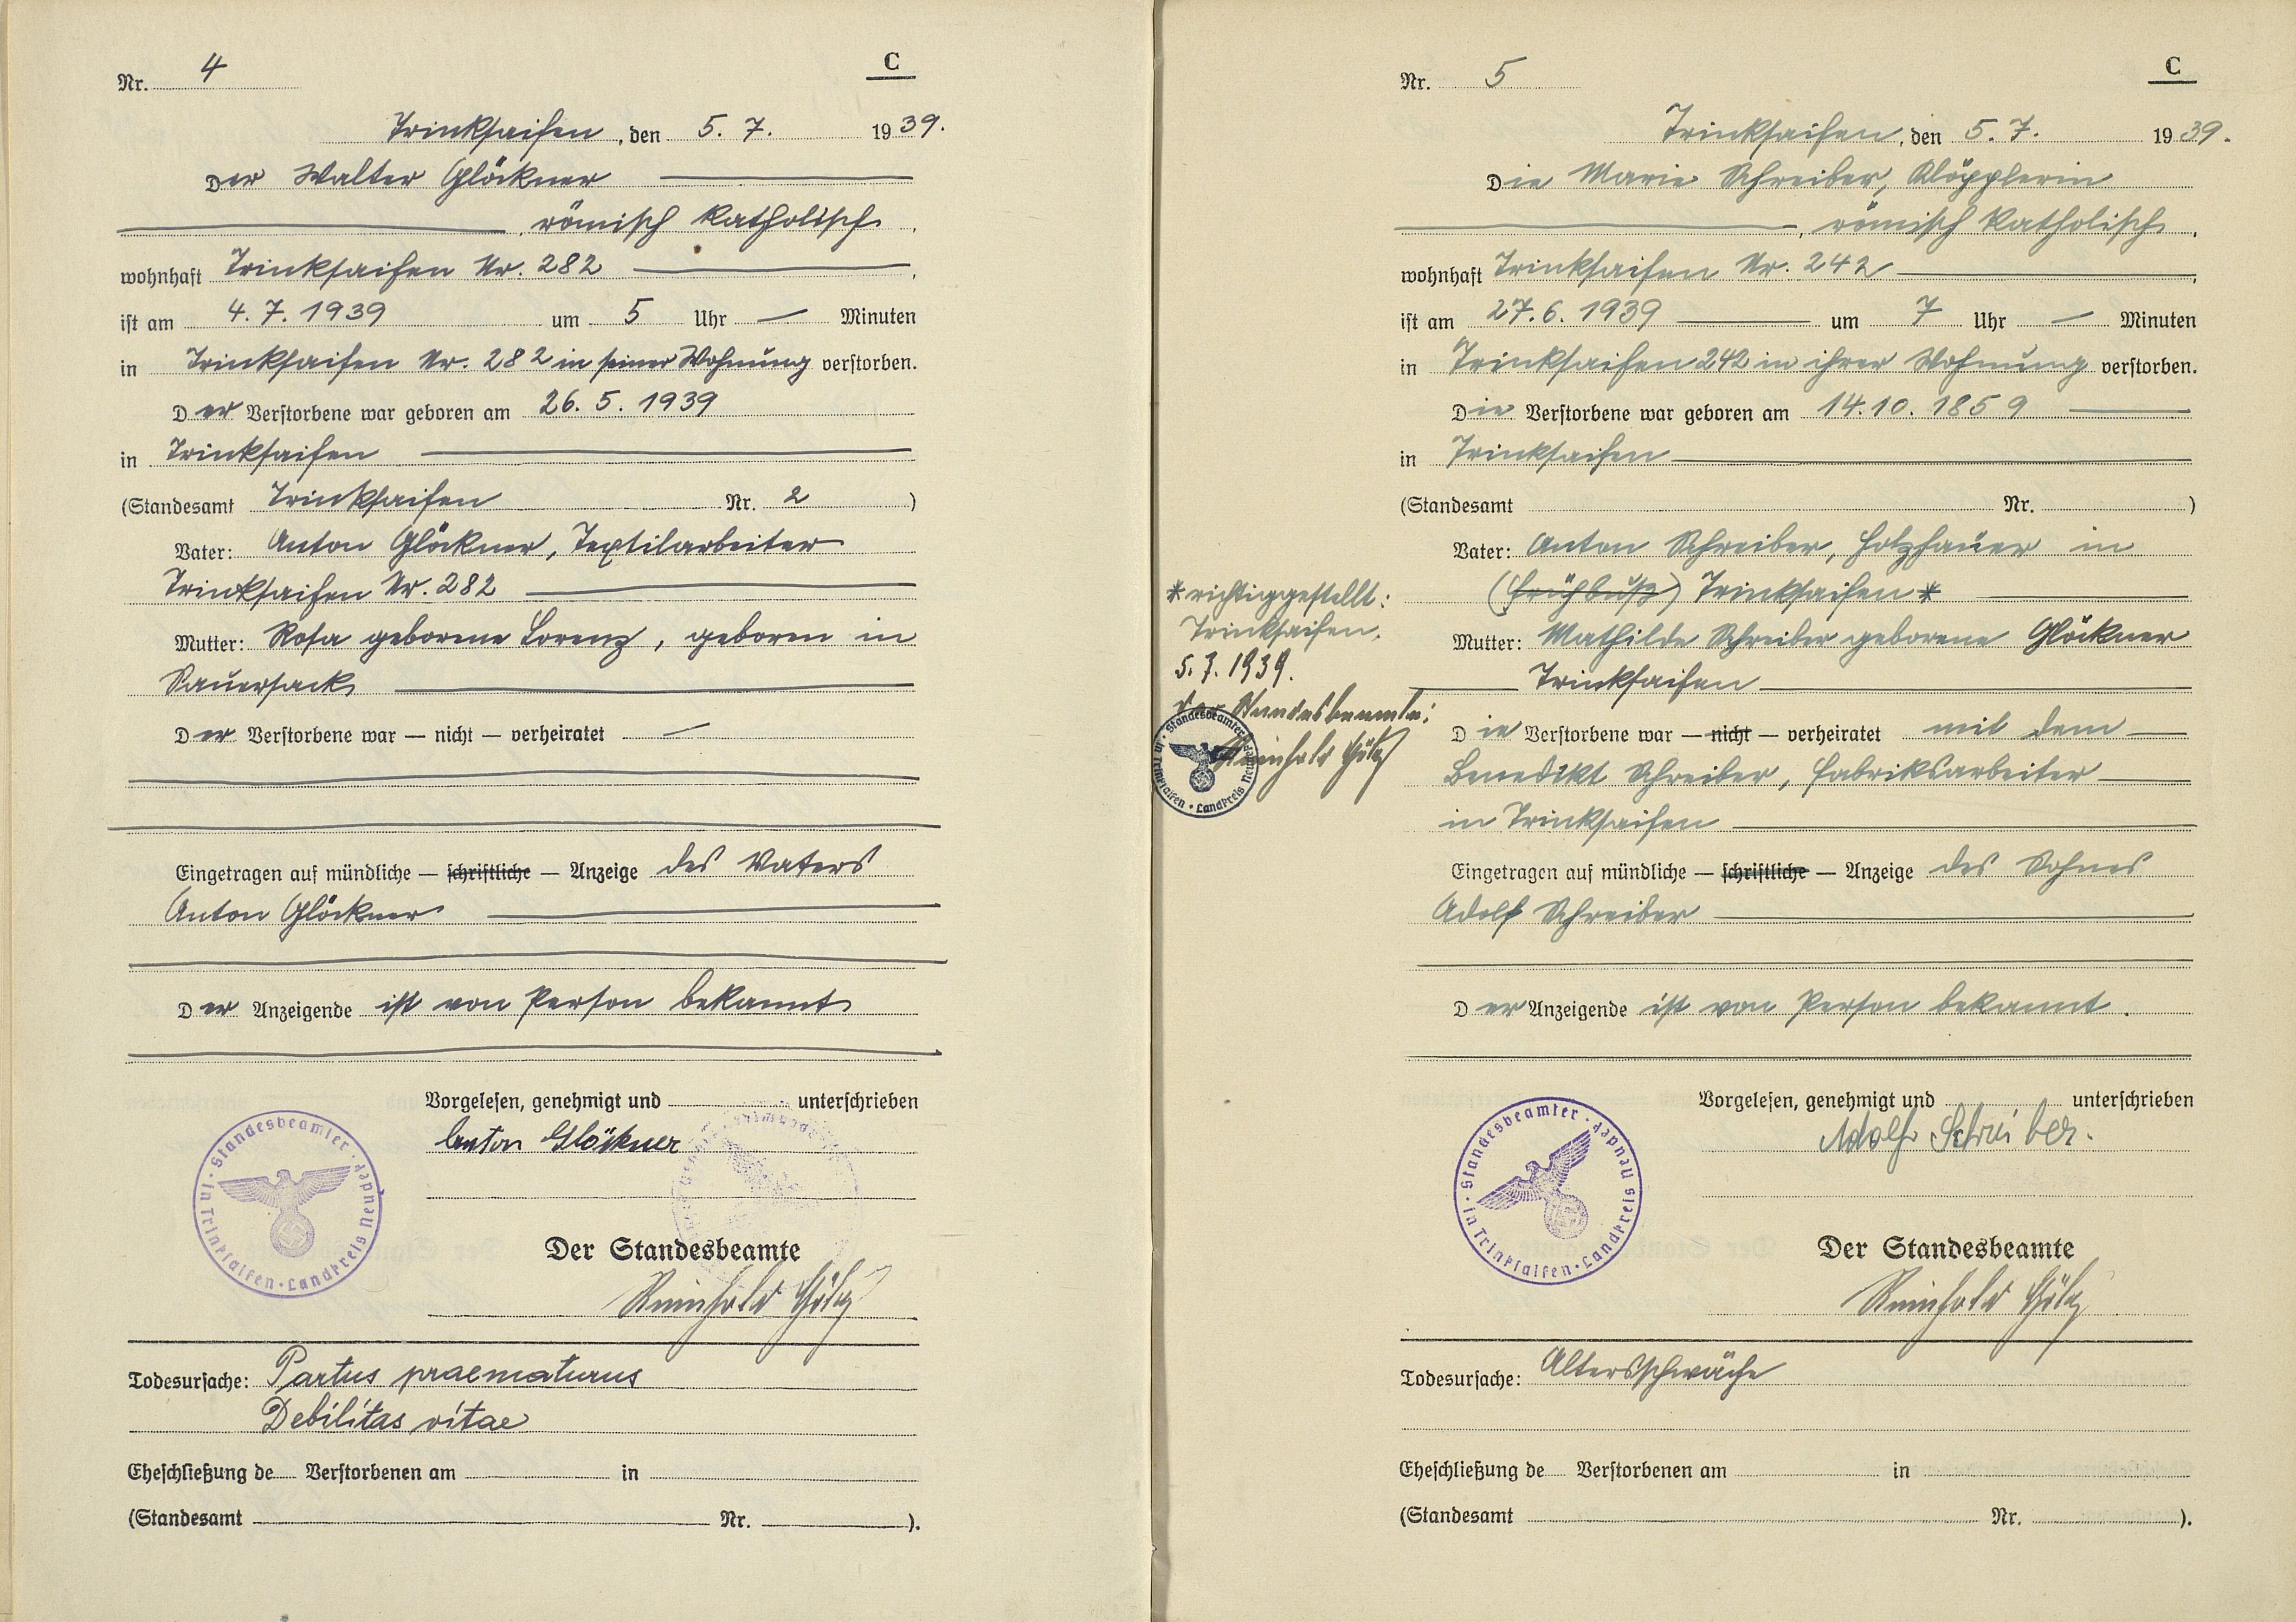 Nr. 4
C
Trinksaifen, den 5. 7. 1939.
Der Walter Glöckner
, römisch katholisch,
wohnhaft Trinksaifen Nr. 282,
ist am 4. 7. 1939 um 5 Uhr — Minuten
in Trinksaifen Nr. 282 in seiner Wohnung verstorben.
Der Verstorbene war geboren am 26. 5. 1939
in Trinksaifen
(Standesamt Trinksaifen Nr. 2)
Vater: Anton Glöckner, Textilarbeiter
Trinksaifen Nr. 282
Mutter: Rosa geborene Lorenz, geboren in
Sauersack
Der Verstorbene war — nicht — verheiratet —
Eingetragen auf mündliche — schriftliche — Anzeige des Vaters
Anton Glöckner
Der Anzeigende ist von Person bekannt
Vorgelesen, genehmigt und unterschrieben
Anton Glöckner
Standesbeamter · in Trinksaifen · Landkreis Neudek
Der Standesbeamte
Reinhold
Todesursache: Partus praematurus
Debilitas vitae
Eheschließung de Verstorbenen am in
(Standesamt Nr. ).
Nr. 5
C
Trinksaifen, den 5. 7. 1939.
Die Marie Schreiber, Klöpplerin
, römisch katholisch,
wohnhaft Trinksaifen Nr. 242,
ist am 27. 6. 1939 um 7 Uhr — Minuten
in Trinksaifen 242 in ihrer Wohnung verstorben.
Die Verstorbene war geboren am 14. 10. 1859
in Trinksaifen
(Standesamt Nr. )
Vater: Anton Schreiber, Holzhauer in
(Frühbuß) Trinksaifen *
Mutter: Mathilde Schreiber geborene Glöckner
Trinksaifen
Die Verstorbene war — nicht — verheiratet mit dem
Benedikt Schreiber, Fabriksarbeiter
in Trinksaifen
Eingetragen auf mündliche — schriftliche — Anzeige des Sohnes
Adolf Schreiber
Der Anzeigende ist von Person bekannt.
* richtiggestellt:
Trinksaifen,
5. 7. 1939.
Der Standesbeamte:
Reinhold
Standesbeamter · in Trinksaifen · Landkreis Neudek
Vorgelesen, genehmigt und unterschrieben
Adolf Schreiber.
Standesbeamter · in Trinksaifen · Landkreis Neudek
Der Standesbeamte
Reinhold
Todesursache: Altersschwäche
Eheschließung de Verstorbenen am in
(Standesamt Nr. ).